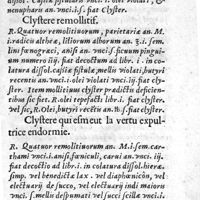 dissol. Cassiæ fistularis vnci.i. olei violati, &
nenupharis an. vnci.i.ſ. fiat clyster.
Clystere remollitif.
R. Quatuor remolitiuorum, parietariæ an. M.
i. radicis altheæ, litiorum alborum an. ℥.i. sem.
lini fœnogræci, anisi an. vnci.ſ. ficuum pinguium
numero iiij. fiat decoctum ad libr. i. in colatura
dissol. cassiæ fistulæ, mellis violati, butyri
recentis an. vnci.i. olei violati vnci.iij. fiat clyster.
Item mollitiuus clyster prædictis deficientibus
sic fiet. R. olei tepefacti libr.i. fiat clyster.
vel sic, R. Olei, butyri recētis an. ℔.ſ. fiat clyster.
Clystere qui esmeut la vertu expultrice
endormie.
R. Quatuor remolitiuorum an. M.i. sem. carthami
vnci.i. anisi, fœniculi, cumini an. vnci.ſ.
fiat decoctio ad libr.i. in colatura dissol. hieræ
simp. vel benedictæ lax. vel diaphœnicōn, vel
electuarij de succo, vel electuarij indi maioris
vnci.ſ. mellis despumati vnci.i. salis vnci.i. olei